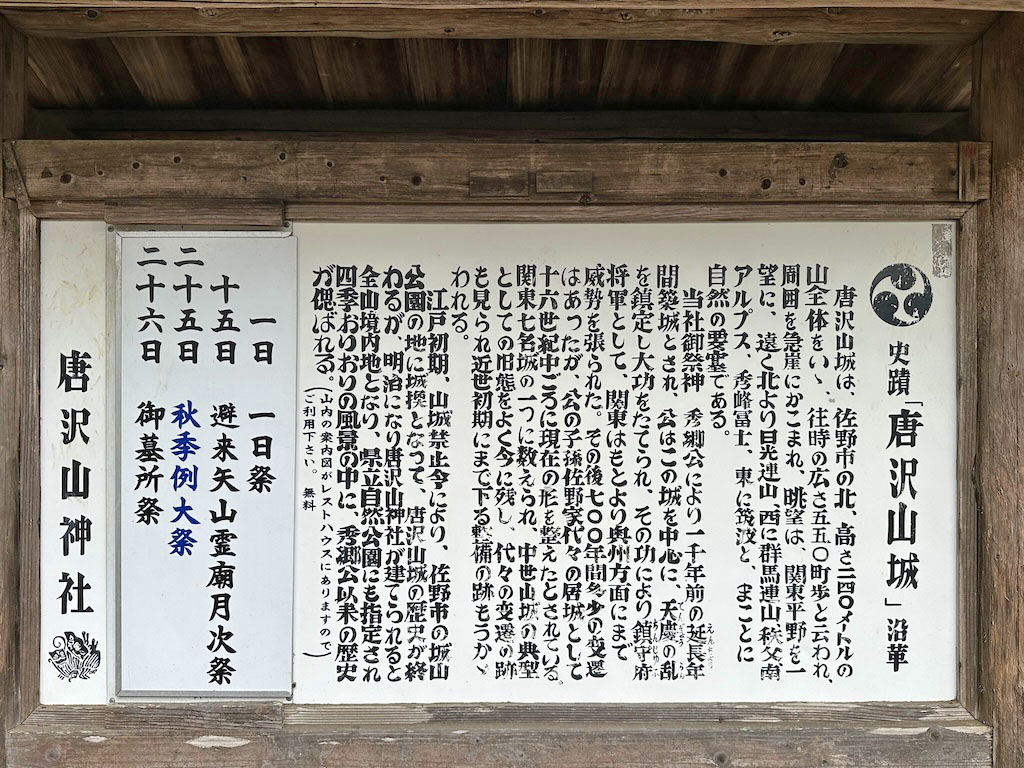 史蹟「唐沢山城」沿革
唐沢山城は、佐野市の北、高さ二四〇メートルの
山全体をいゝ、往時の広さ五五〇町歩と云われ、
周囲を急崖にかこまれ、眺望は、関東平野を一
望に、遠く北より日光連山、西に群馬連山秩父南
アルプス、秀峰富士、東に筑波と、まことに
自然の要塞である。
当社御祭神 秀郷公により一千年前の延長年
間築城とされ、公はこの城を中心に、天慶の乱
を鎮定し大功をたてられ、その功により鎮守府
将軍として、関東はもとより奥州方面にまで
威勢を張られた。その後七〇〇年間多少の変遷
はあったが、公の子孫佐野家代々の居城として
十六世紀中ごろに現在の形を整えたとされている。
関東七名城の一つに数えられ、中世山城の典型
としての旧態をよく今に残し、代々の変遷の跡
も見られ近世初期にまで下る整備の跡もうかゞ
われる。
江戸初期、山城禁止令により、佐野市の城山
公園の地に城換となって、唐沢山城の歴史が終
わるが、明治になり唐沢山神社が建てられると
全山境内地となり、県立自然公園にも指定され
四季おりおりの風景の中に、秀郷公以来の歴史
が偲ばれる。(山内の案内図がレストハウスにありますので)
ご利用下さい。 無料
一日 一日祭
十五日 避来矢山霊廟月次祭
二十五日 秋季例大祭
二十六日 御墓所祭
唐沢山神社